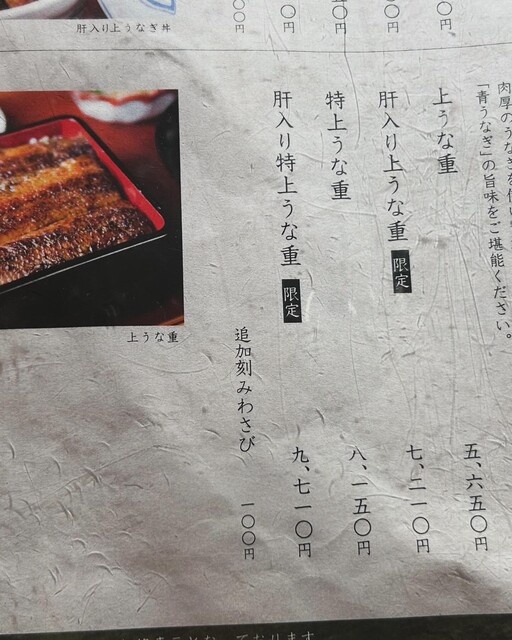 肝入り上うなぎ丼
「青うなぎ」の旨味をご堪能ください。
上うな重
五、六五〇円
肝入り上うな重 限定
七、二一〇円
特上うな重
八、一五〇円
肝入り特上うな重 限定
九、七一〇円
追加刻みわさび
一〇〇円
上うな重